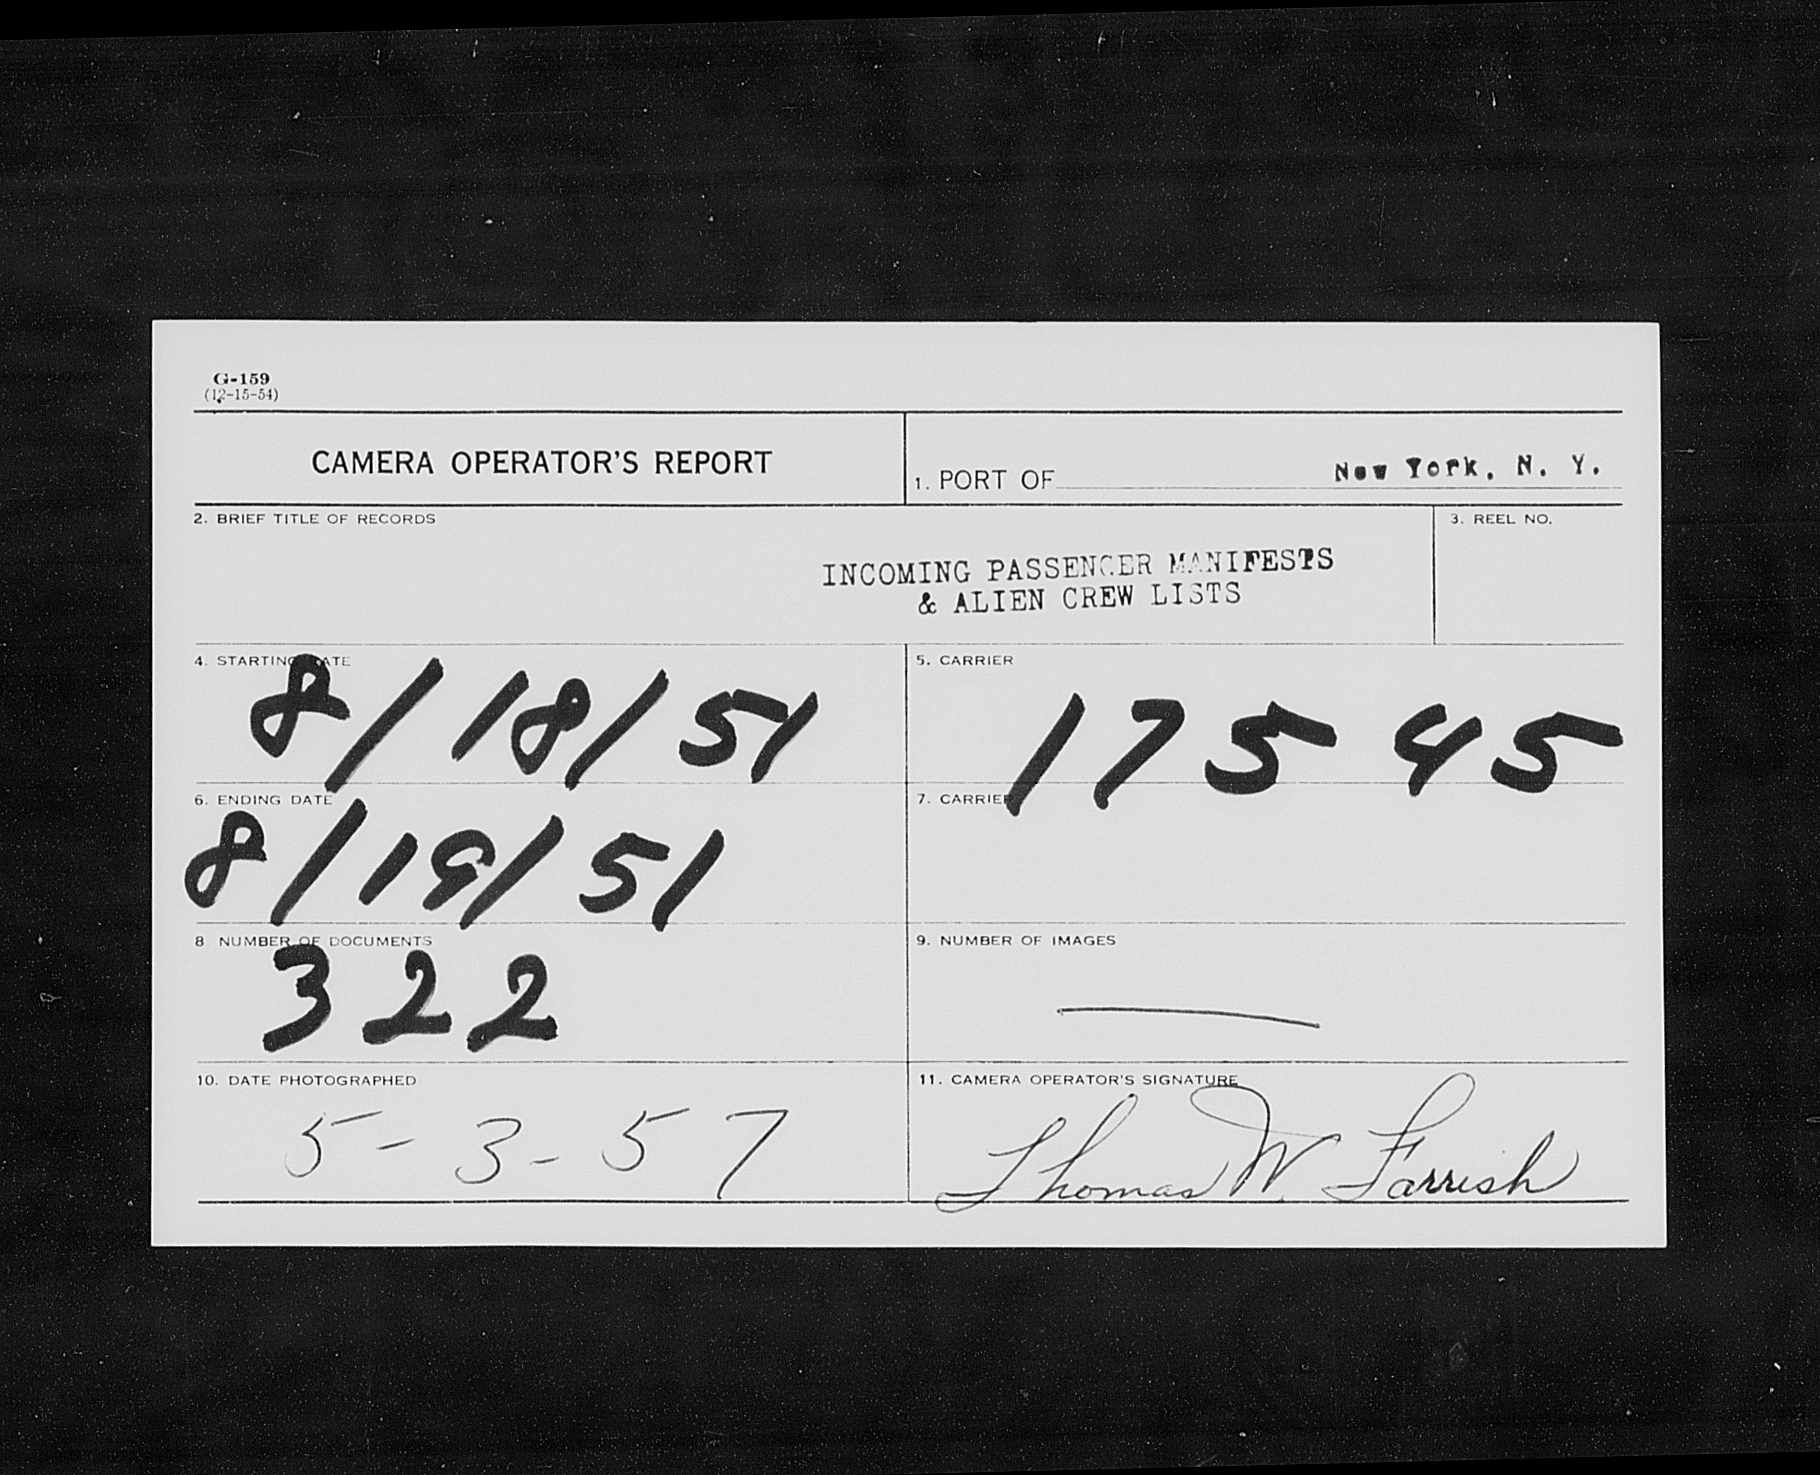 G-159
(12-15-54)
CAMERA OPERATOR'S REPORT
1. PORT OF New York, N. Y.
2. BRIEF TITLE OF RECORDS
3. REEL NO.
INCOMING PASSENGER MANIFESTS
& ALIEN CREW LISTS
4. STARTING DATE
8/18/51
5. CARRIER
17545
6. ENDING DATE
8/19/51
7. CARRIER
8 NUMBER OF DOCUMENTS
322
9. NUMBER OF IMAGES
10. DATE PHOTOGRAPHED
5-3-57
11. CAMERA OPERATOR'S SIGNATURE
Thomas W. Farrish